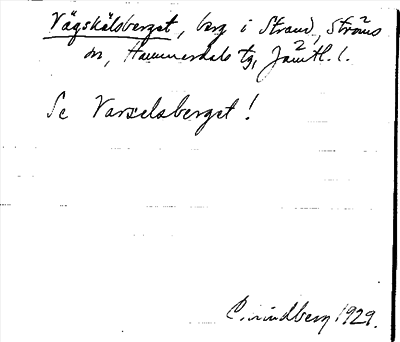 Vägskälsberget, berg i Strand, Ströms
sn, Hammerdals tg, Jämtl. l.
Se Varselsberget!
C. Lindberg 1929.